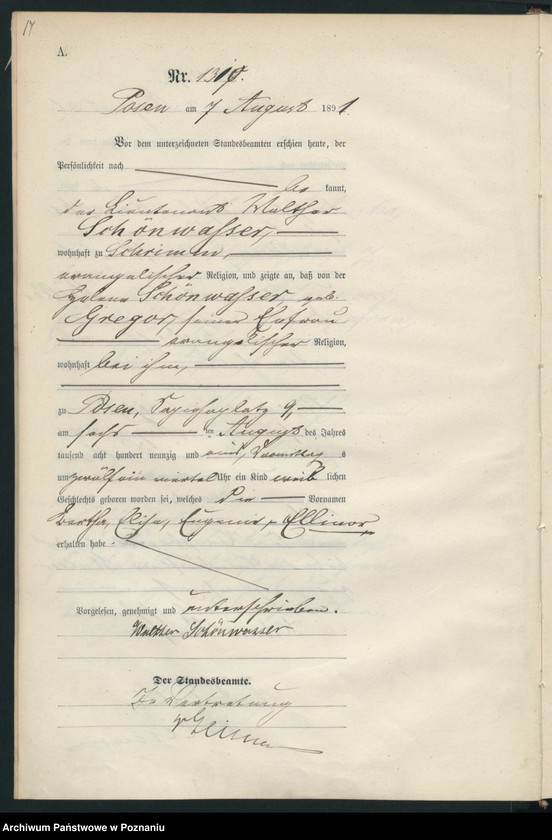 17
A.
Nr. 1310.
Posen am 7 August 1891.
Vor dem unterzeichneten Standesbeamten erschien heute, der
Persönlichkeit nach
be kannt,
der Lieutenant Walther
Schönwasser,
wohnhaft zu Schrimm,
evangelischer Religion, und zeigte an, daß von der
Helene Schönwasser, geb.
Gregor, seiner Ehefrau
evangelischer Religion,
wohnhaft bei ihm,
zu Posen, Sapiehaplatz 9,
am sechs ten August des Jahres
tausend acht hundert neunzig und eins, Vormittag s
um zwölf ein viertel Uhr ein Kind weib lichen
Geschlechts geboren worden sei, welches die Vornamen
Bertha, Elisa, Eugenie, Ellinor,
erhalten habe.
Vorgelesen, genehmigt und unterschrieben.
Walther Schönwasser
Der Standesbeamte.
In Vertretung
Archiwum Państwowe w Poznaniu